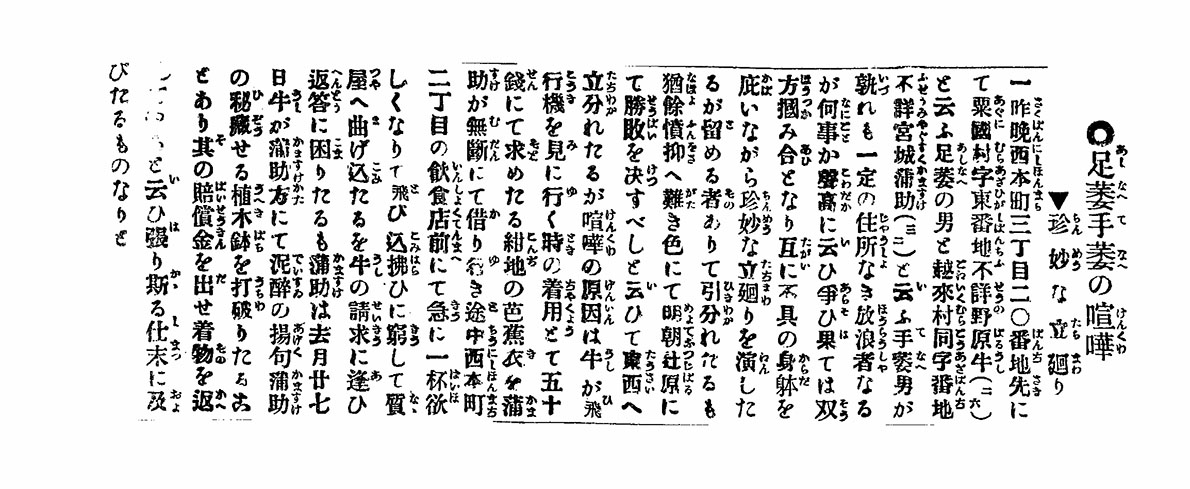 ●足萎手萎の喧嘩
▼珍妙な立廻り
一昨晩西本町三丁目二〇番地先に
て粟國村字東番地不詳野原牛(二六)
と云ふ足萎の男と越來村同字番地
不詳宮城蒲助(三二)と云ふ手萎男が
孰れも一定の住所なき放浪者なる
が何事か聲高に云ひ爭ひ果ては双
方摑み合となり互に不具の身躰を
庇いながら珍妙な立廻りを演した
るが留める者ありて引分れたるも
猶餘憤抑へ難き色にて明朝辻原に
て勝敗を决すべしと云ひて東西へ
立分れたるが喧嘩の原因は牛が飛
行機を見に行く時の着用とて五十
錢にて求めたる紺地の芭蕉衣を蒲
助が無斷にて借り行き途中西本町
二丁目の飲食店前にて急に一杯欲
しくなりて飛び込拂ひに窮して質
屋へ曲げ込たるを牛の請求に逢ひ
返答に困りたるも蒲助は去月廿七
日牛が蒲助方にて泥醉の揚句蒲助
の秘藏せる植木鉢を打破りたる古
とあり其の賠償金を出せ着物を返
と云ひ張り斯る仕末に及
びたるものなりと